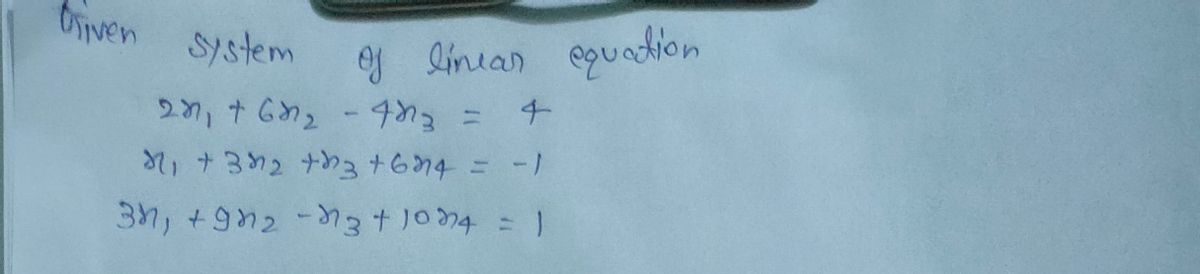 Given system of linear equation
2x₁ + 6x₂ - 4x₃ = 4
x₁ + 3x₂ + x₃ + 6x₄ = -1
3x₁ + 9x₂ - x₃ + 10x₄ = 1